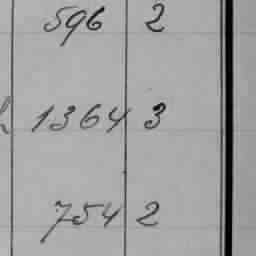 596 2
1364 3
754 2